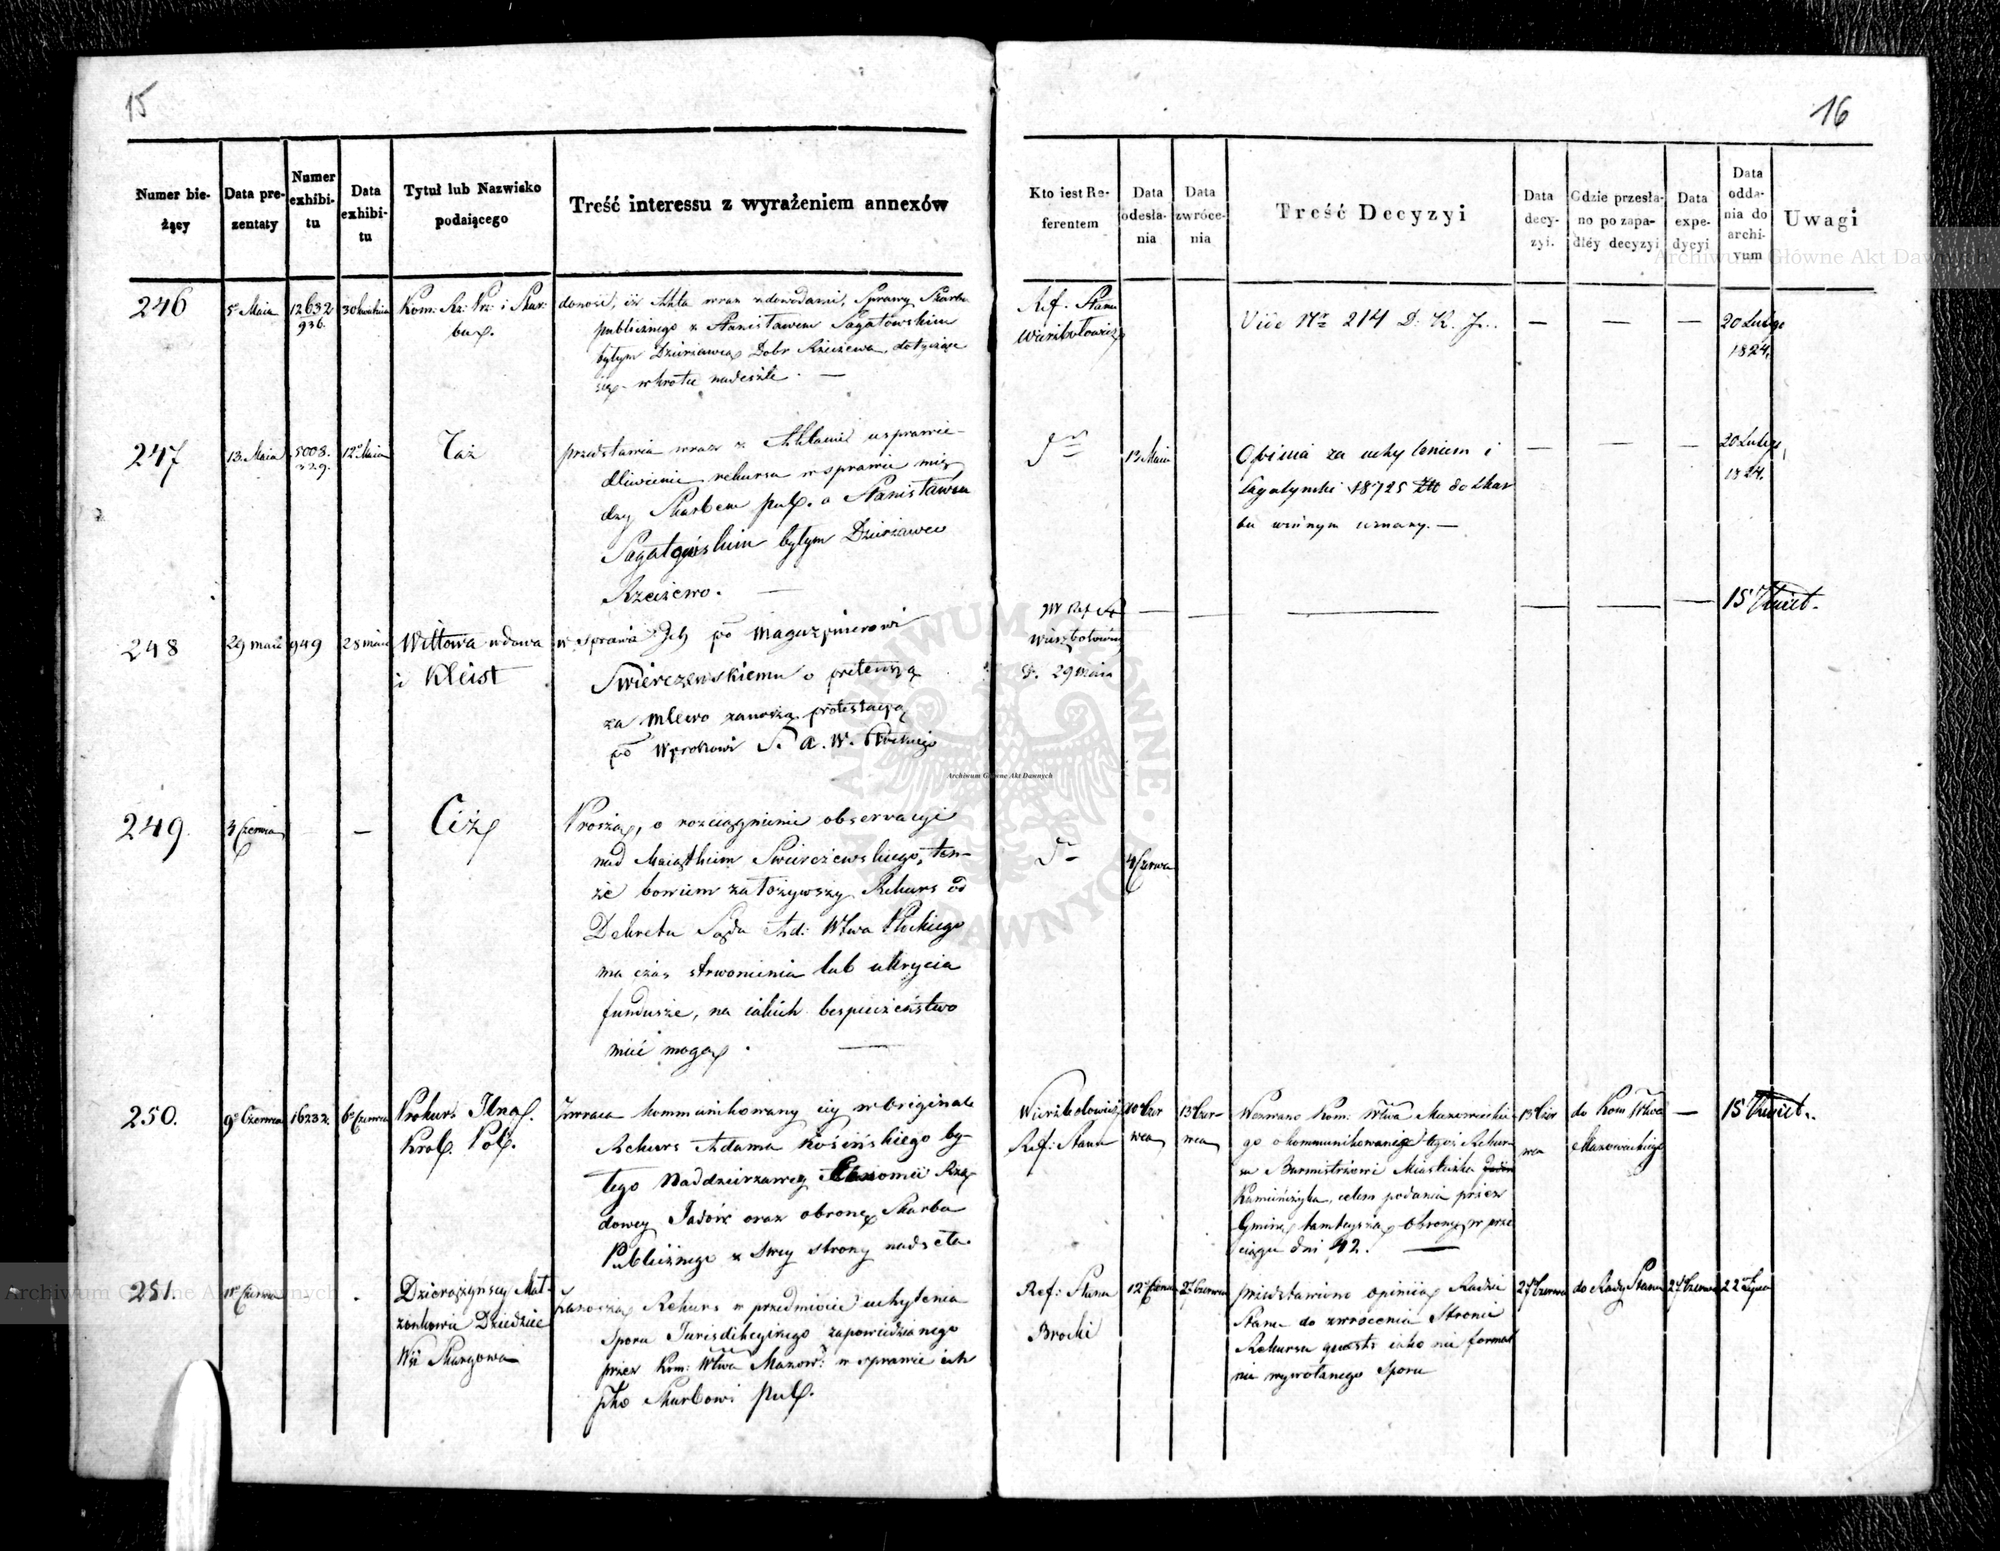 15
Numer bie-
żący
Data pre-
zentaty
Numer
exhibi-
tu
Data
exhibi-
tu
Tytuł lub Nazwisko
podaiącego
Treść interessu z wyrażeniem annexów
246
5º Maia
12632
936.
30 kwietnia
Kom: Rz: Prz: i Skar:
donosi, iż Akta wraz z dowodami, Sprawy Skarbu
publicznego z Stanisławem Sagatowskim
byłym Dzierżawcą Dobr Rzeczewa, dotyczące
się w krotce nadeszle. —
247
13. Maia
5008.
12º Maia
Taż
przedstawia wraz z Aktami usprawie-
dliwienie rekursu w sprawie mię
dzy Skarbem pub. a Stanisławem
Sagatowskim byłym Dzierżawcą
Rzeczewo. —
248
29 maia
949
28 maia
Wittowa wdowa
i Kleist
w sprawie Ich pko Magazynierowi
Swierczewskiemu o pretensyą
za mlewo zanoszą protestacyą
pko Wyrokowi S. A. W. Płockiego
249.
4 Czerwca
—
Ciż
Proszą, o rozciągnienie obserwacyi
nad Maiątkiem Swierczewskiego, ten-
że bowiem założywszy Rekurs od
Dekretu Sądu Ad: Wtwa Płockiego
ma czas strwonienia lub ukrycia
fundusze, na iakich bespieczeństwo
mieć mogą. —
250.
9º Czerwca
16232.
6º Czerwca
Prokur: Jlna
Król. Pol.
Zwraca kommunikowany iey w Originale
Rekurs Adama Kosińskiego by-
łego Naddzierżawcy Ekonomii Rzą-
dowey Jadów oraz obronę Skarbu
Publicznego z swey strony nadseła
251.
11º Czerwca
Dzierążyńscy Mał-
żonkowie Dziedzice
Wsi Skurzowa
zanoszą Rekurs w przedmiocie uchylenia
Sporu Jurisdikcyinego zapowiedzianego
przez Kom: Wtwa Mazow: w sprawie ich
pko Skarbowi pub.
16
Kto iest Re-
ferentem
Data
odesła-
nia
Data
zwróce-
nia
Treść Decyzyi
Data
decy-
zyi.
Gdzie przesła-
no po zapa-
dłéy decyzyi
Data
expe-
dycyi
Data
odda-
nia do
archi-
vum
Uwagi
Ref. Stanu
Wierzbołowicz
Vide Nr 214 D. K. J.. — — —
20 Lutego
1824.
Dº
13 Maia
Opinia za uchyleniem i
Sagatynski 18725 do Skar
bu winnym uznany. —
— — —
20 Lutego
1824.
W Ref St
Wierzbołowicz
d. 29 maia
— — — — — —
15 Kwiet.
Dº
4 Czerwca
Wierzbołowicz
Ref: Stanu
10º Czer
wca
13º Czer-
wca
Wezwano Kom: Wtwa Mazowieckie
go o kommunikowanie tegoż Rekur-
su Burmistrzowi Miasteczka
Kamieńczyka, celem podania przez
Gminę tamteyszą obrony w prze
ciągu dni 42. —
13º Czer
wca
do Kom Wtwa
Mazowieckiego
—
15 Kwiet.
Ref: Stanu
Brocki
12º Czerwca
27 Czerwca
przedstawiono opinią Radzie
Stanu do zwrócenia Stronie
Rekursu quaest: iako nie formal
nie wywołanego Sporu
27 Czerwca
do Rady Stanu
27 Czerwca
22 Lipca
Archiwum Główne Akt Dawnych
Archiwum Główne Akt Dawnych
Archiwum Główne Akt Dawnych